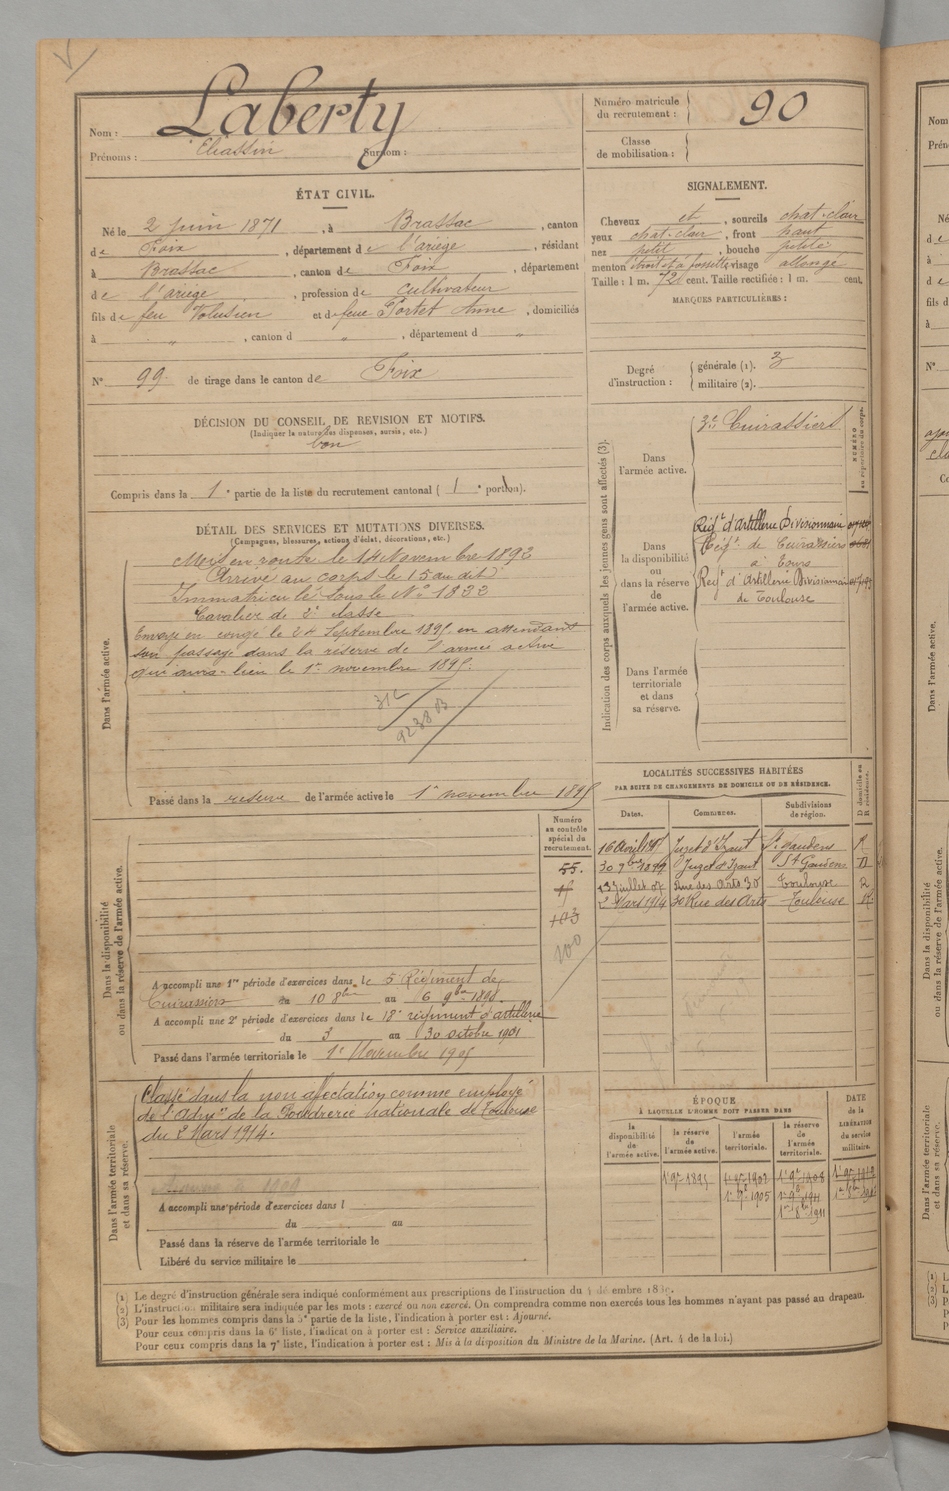 Nom : Laberty
Prénoms : Chassin Surnom :
Numéro matricule du recrutement : 90
Classe de mobilisation :
ÉTAT CIVIL.
Né le 2 juin 1871, à Brassac, canton
de Foix, département de l'ariège, résidant
à Brassac, canton de Foix, département
de l'ariège, profession de cultivateur
fils de feu Volusien et de feue Portet Anne, domiciliés
à " , canton d " , département d "
N° 99 de tirage dans le canton de Foix
DÉCISION DU CONSEIL DE REVISION ET MOTIFS.
(Indiquer la nature des dispenses, sursis, etc.)
bon
Compris dans la 1e partie de la liste du recrutement cantonal ( 1e portion).
SIGNALEMENT.
Cheveux et , sourcils chat-clair
yeux chat-clair , front haut
nez petit , bouche petite
menton étroit et à fossette visage allongé
Taille : 1 m. 72 cent. Taille rectifiée : 1 m. cent.
MARQUES PARTICULIÈRES :
Degré d'instruction : générale (1). 3
militaire (2).
DÉTAIL DES SERVICES ET MUTATIONS DIVERSES.
(Campagnes, blessures, actions d'éclat, décorations, etc.)
Dans l'armée active.
Mis en route le 14 Novembre 1892
Arrivé au corps le 15 du dit
Immatriculé sous le N° 1833
Cavalier de 2e classe
Envoyé en congé le 24 Septembre 1895 en attendant
son passage dans la réserve de l'armée active
qui aura lieu le 1er novembre 1895.
312
9238 B
Passé dans la reserve de l'armée active le 1er novembre 1895
Indication des corps auxquels les jeunes gens sont affectés (3).
NUMÉRO au répertoire du corps.
Dans l'armée active.
3e Cuirassiers
Dans la disponibilité ou dans la réserve de l'armée active.
Régt d'Artillerie Divisionnaire
Régt de Cuirassiers
à Tours
Regt d'Artillerie Divisionnaire
de Toulouse
Dans l'armée territoriale et dans sa réserve.
LOCALITÉS SUCCESSIVES HABITÉES
PAR SUITE DE CHANGEMENTS DE DOMICILE OU DE RÉSIDENCE.
D domicile ou R résidence.
Dates. Communes. Subdivisions de région.
16 Avril Juzet d'Izaut St Gaudens R
30 7bre 1899 Juzet d'Izaut St Gaudens D
13 juillet 07 Rue des Arts 30 Toulouse R
2 Mars 1914 30 Rue des Arts Toulouse R
Numéro au contrôle spécial du recrutement.
55.
103
100
Dans la disponibilité ou dans la réserve de l'armée active.
A accompli une 1re période d'exercices dans le 5 Régiment de
Cuirassiers du 10 8bre au 6 9bre 1898.
A accompli une 2e période d'exercices dans le 18e régiment d'artillerie
du 3 au 30 octobre 1901
Passé dans l'armée territoriale le 1er Novembre 1905
Dans l'armée territoriale et dans sa réserve.
Classé dans la non affectation comme employé
de l'Admon de la Poudrerie nationale de Toulouse
du 2 Mars 1914.
A accompli une période d'exercices dans l
du au
Passé dans la réserve de l'armée territoriale le
Libéré du service militaire le
ÉPOQUE
À LAQUELLE L'HOMME DOIT PASSER DANS
DATE de la LIBÉRATION du service militaire.
la disponibilité de l'armée active. la réserve de l'armée active. l'armée territoriale. la réserve de l'armée territoriale.
1er 9bre 1895 1er 9bre 1902 1er 9bre 1908
1er 8bre 1905 1er 9bre 1911
1er 8bre 1911
(1) Le degré d'instruction générale sera indiqué conformément aux prescriptions de l'instruction du 4 décembre
(2) L'instruction militaire sera indiquée par les mots : exercé ou non exercé. On comprendra comme non exercés tous les hommes n'ayant pas passé au drapeau.
(3) Pour les hommes compris dans la 5e partie de la liste, l'indication à porter est : Ajourné.
Pour ceux compris dans la 6e liste, l'indication à porter est : Service auxiliaire.
Pour ceux compris dans la 7e liste, l'indication à porter est : Mis à la disposition du Ministre de la Marine. (Art. 4 de la loi.)